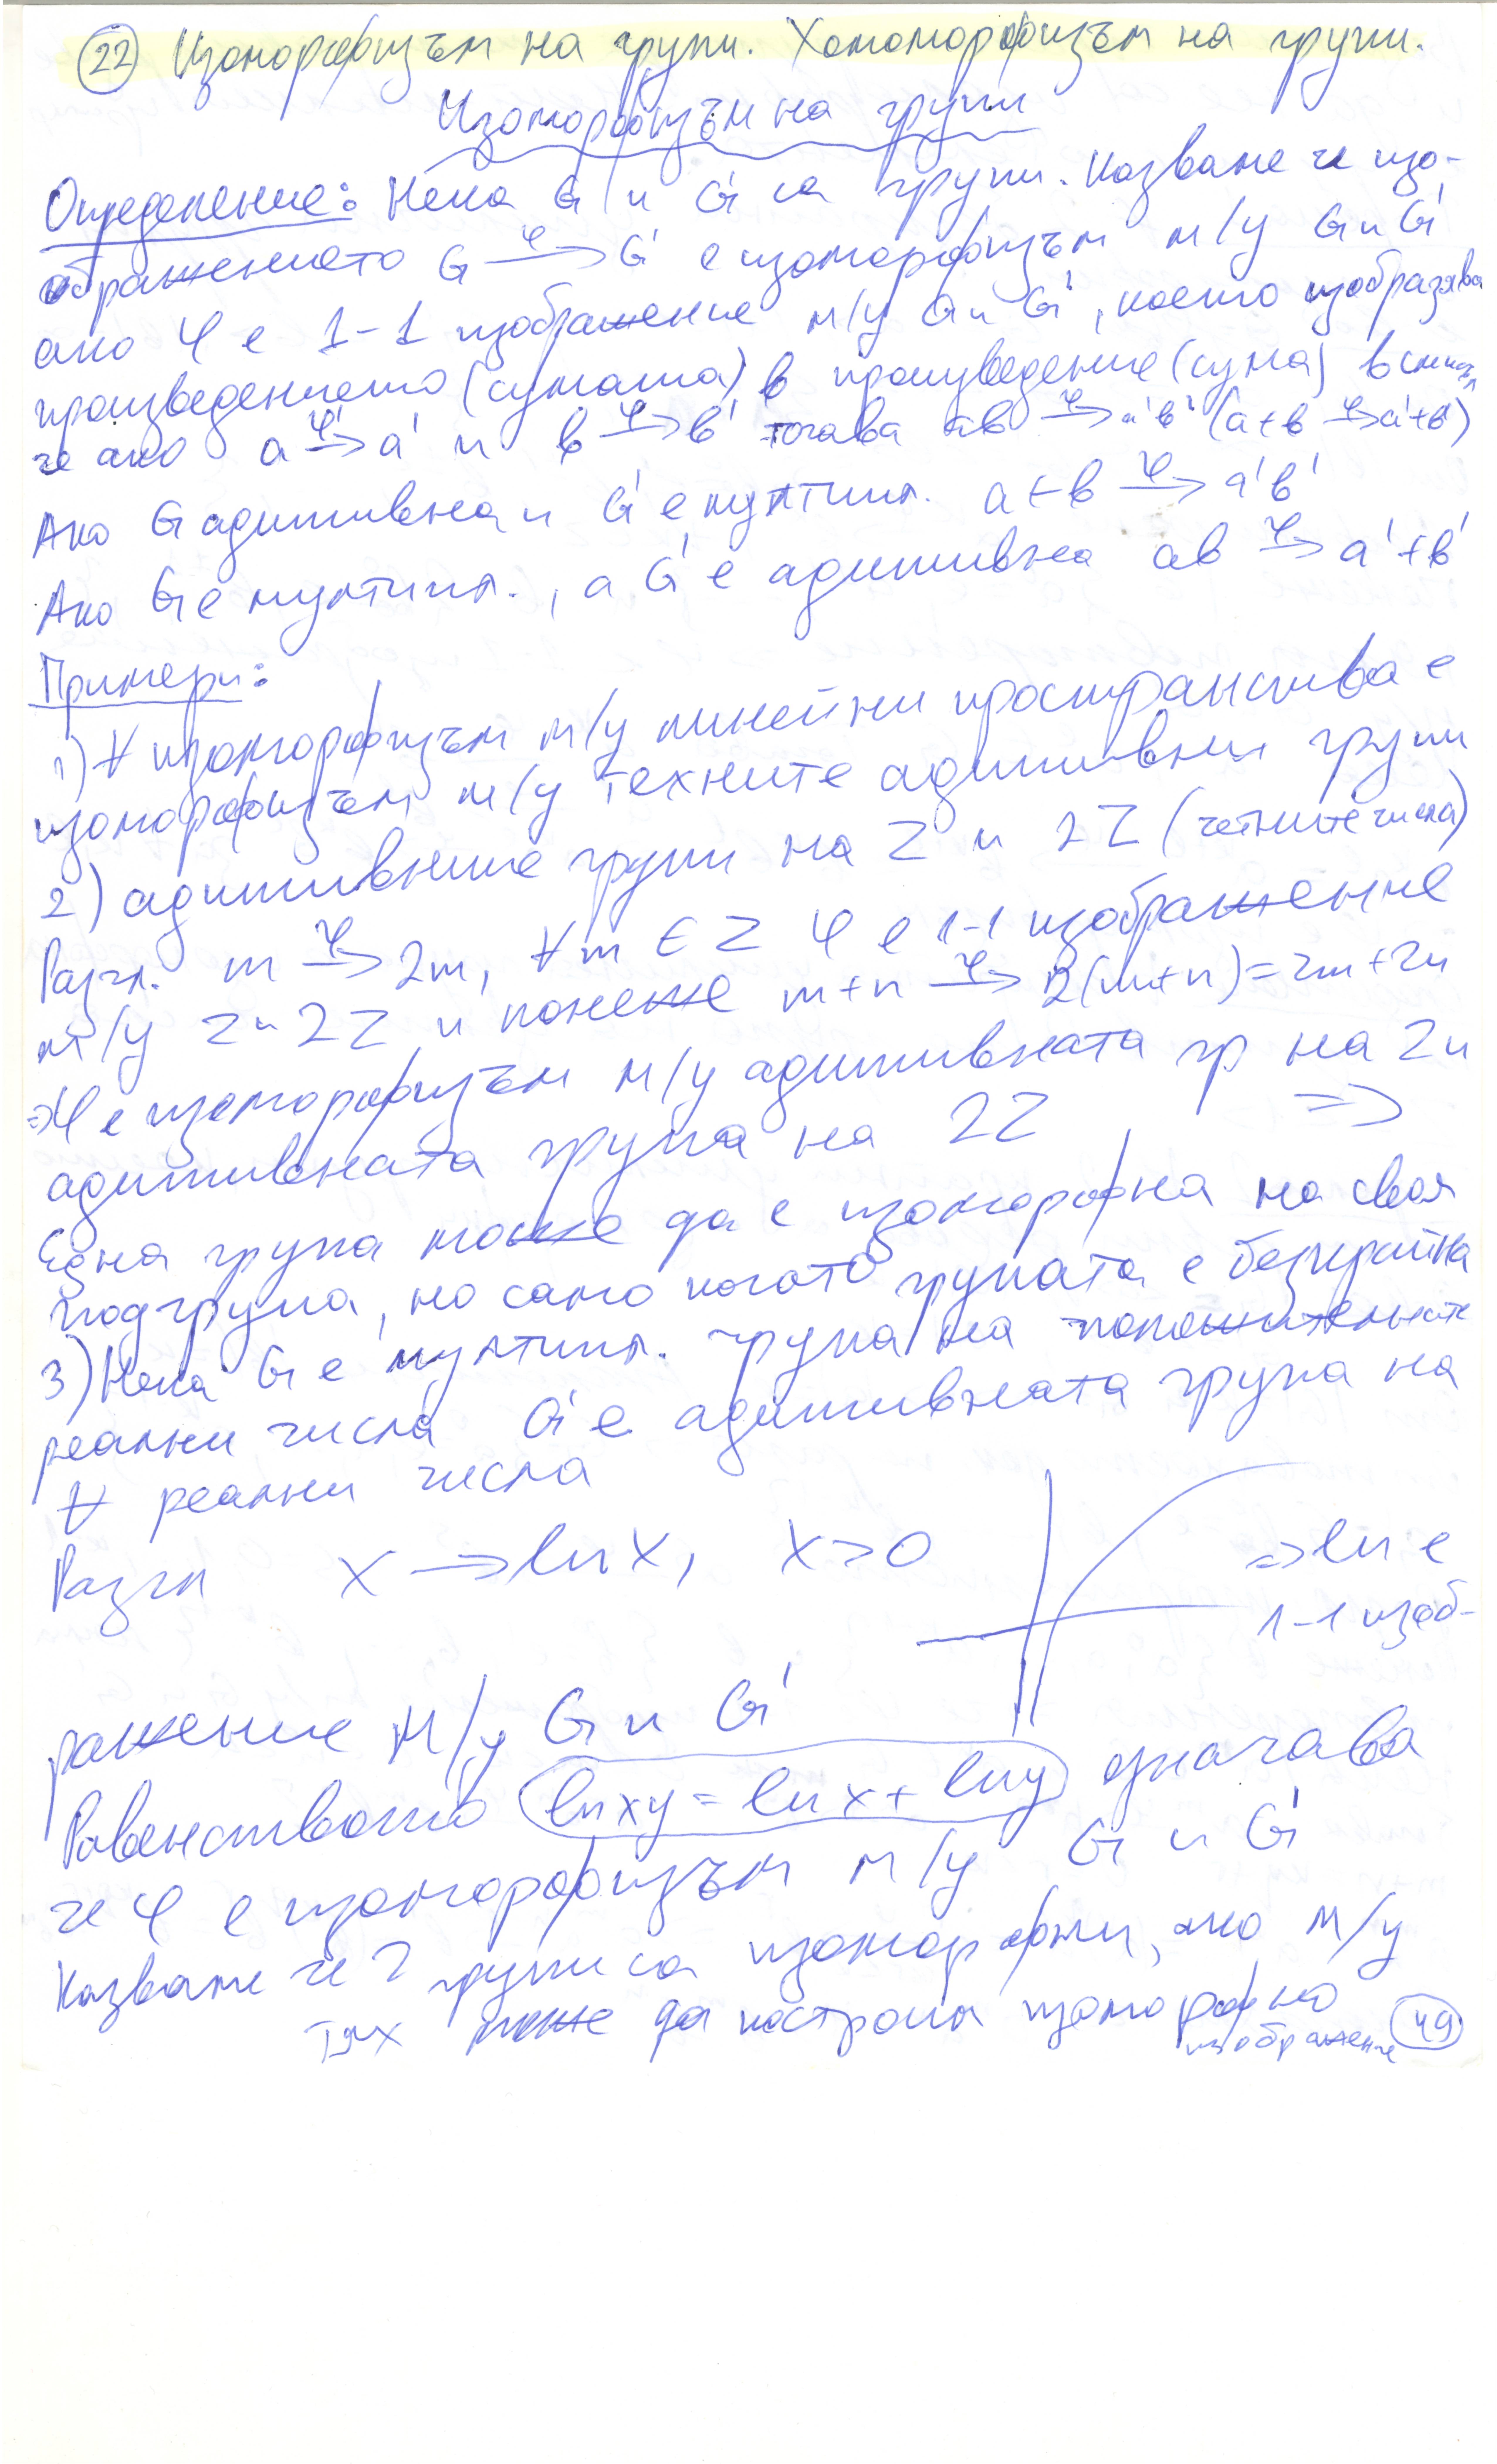 22 Изоморфизъм на групи. Хомоморфизъм на групи.
Изоморфизъм на групи
Определение: Нека G и G' са групи. Казваме че изо-
бражението G φ→ G' е изоморфизъм м/у G и G'
ако φ е 1-1 изображение м/у G и G', което изобразява
произведението (сумата) в произведение (сума) в смисъл
че ако a φ→ a' и b φ→ b' тогава ab φ→ a'b' (a+b φ→ a'+b')
Ако G адитивна и G' е мултипл. a+b φ→ a'b'
Ако G е мултипл., а G' е адитивна ab φ→ a'+b'
Примери:
1) ∀ изоморфизъм м/у линейни пространства е
изоморфизъм м/у техните адитивни групи
2) адитивните групи на Z и 2Z (четните числа)
Разгл. m φ→ 2m, ∀m ∈ Z φ е 1-1 изображение
м/у Z и 2Z и понеже m+n φ→ 2(m+n)=2m+2n
=> φ е изоморфизъм м/у адитивната гр на Z и
адитивната група на 2Z =>
Една група може да е изоморфна на своя
подгрупа, но само когато групата е безкрайна
3) Нека G е мултипл. група на положителните
реални числа G' е адитивната група на
∀ реални числа
Разгл x → ln x, x>0 => ln е
1-1 изоб-
ражение м/у G и G'
Равенството ln xy = ln x + ln y означава
че φ е изоморфизъм м/у G и G'
Казваме че 2 групи са изоморфни, ако м/у
тях може да построим изоморфно
изображение
49